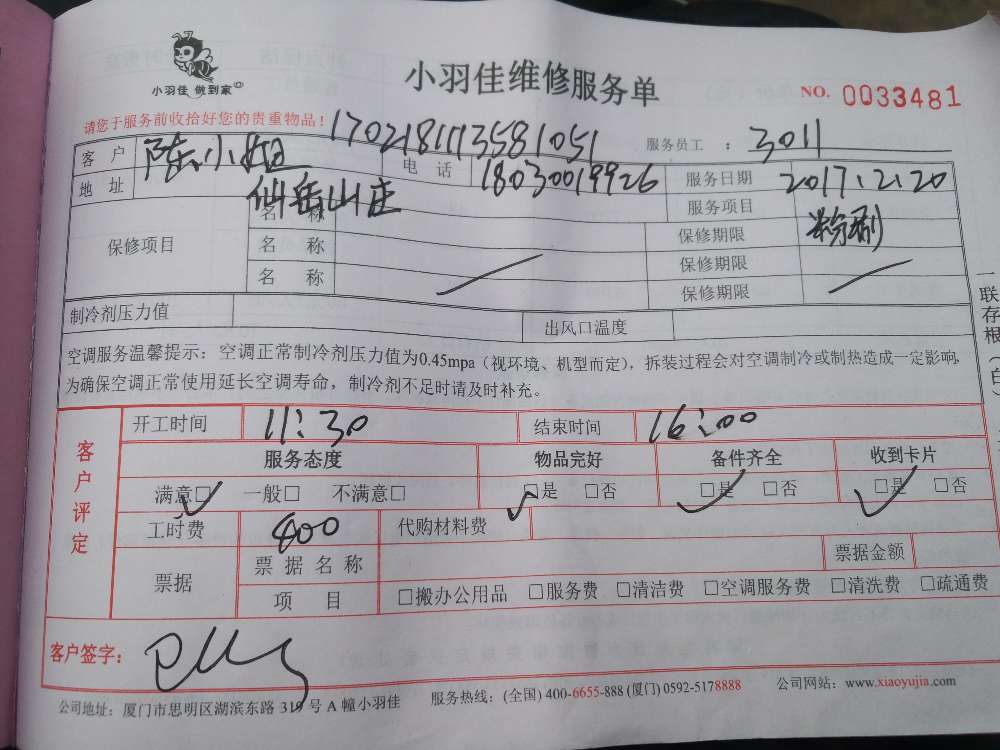 小羽佳 做到家
小羽佳维修服务单
NO. 0033481
请您于服务前收拾好您的贵重物品!
1702181113581051
服务员工 : 3011
客户 陈小姐 电话 18030019926 服务日期 2017.2.20
地址 仙岳山庄 服务项目 粉刷
保修项目
名称 保修期限
名称 保修期限
名称 保修期限
制冷剂压力值 出风口温度
空调服务温馨提示:空调正常制冷剂压力值为0.45mpa(视环境、机型而定),拆装过程会对空调制冷或制热造成一定影响,
为确保空调正常使用延长空调寿命,制冷剂不足时请及时补充。
一联存根(白)
客户评定
开工时间 11:30 结束时间 16:00
服务态度 物品完好 备件齐全 收到卡片
满意□ 一般□ 不满意□ □是 □否 □是 □否 □是 □否
工时费 400 代购材料费
票据 票据名称 票据金额
项目 □搬办公用品 □服务费 □清洁费 □空调服务费 □清洗费 □疏通费
客户签字:
公司地址:厦门市思明区湖滨东路319号A幢小羽佳 服务热线:(全国)400-6655-888(厦门)0592-5178888 公司网站:www.xiaoyujia.com